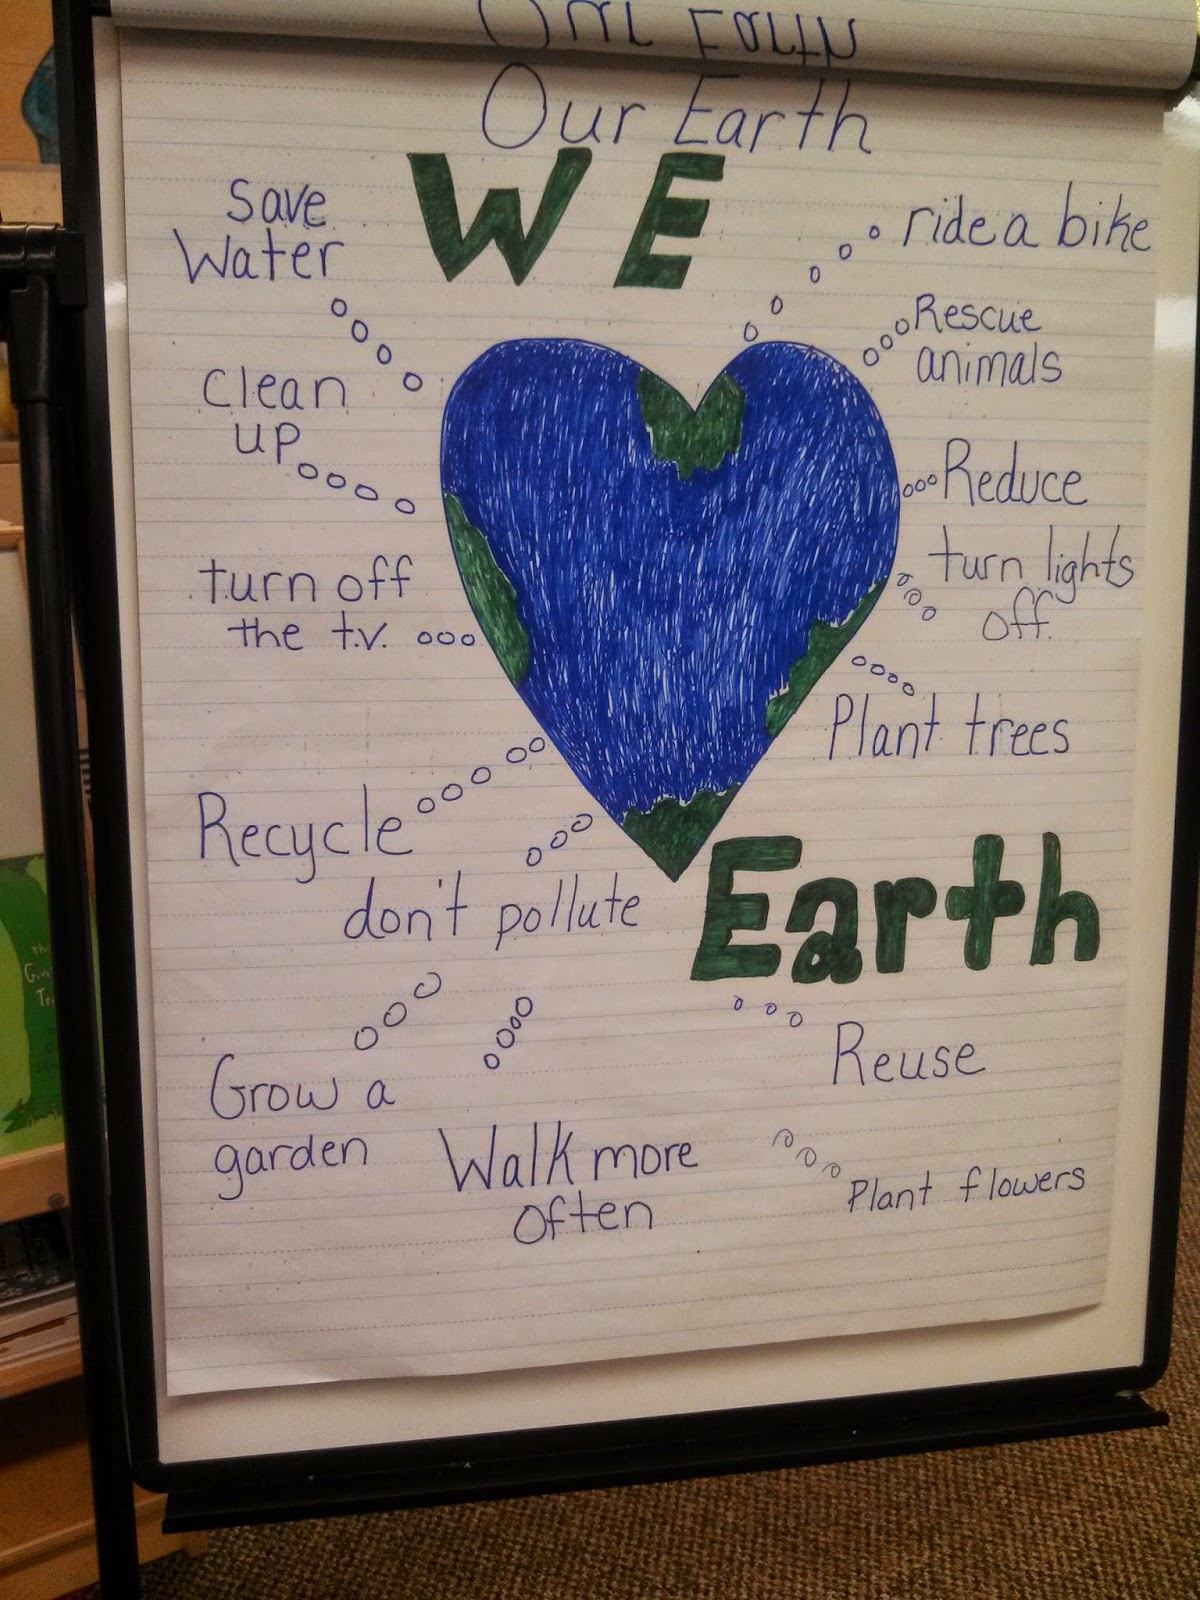 Our Earth
Our Earth
WE
save
Water
ride a bike
Rescue
animals
Clean
up
Reduce
turn off
the t.v.
turn lights
off.
Plant trees
Recycle
don't pollute
Earth
Reuse
Grow a
garden
Walk more
often
Plant flowers
The